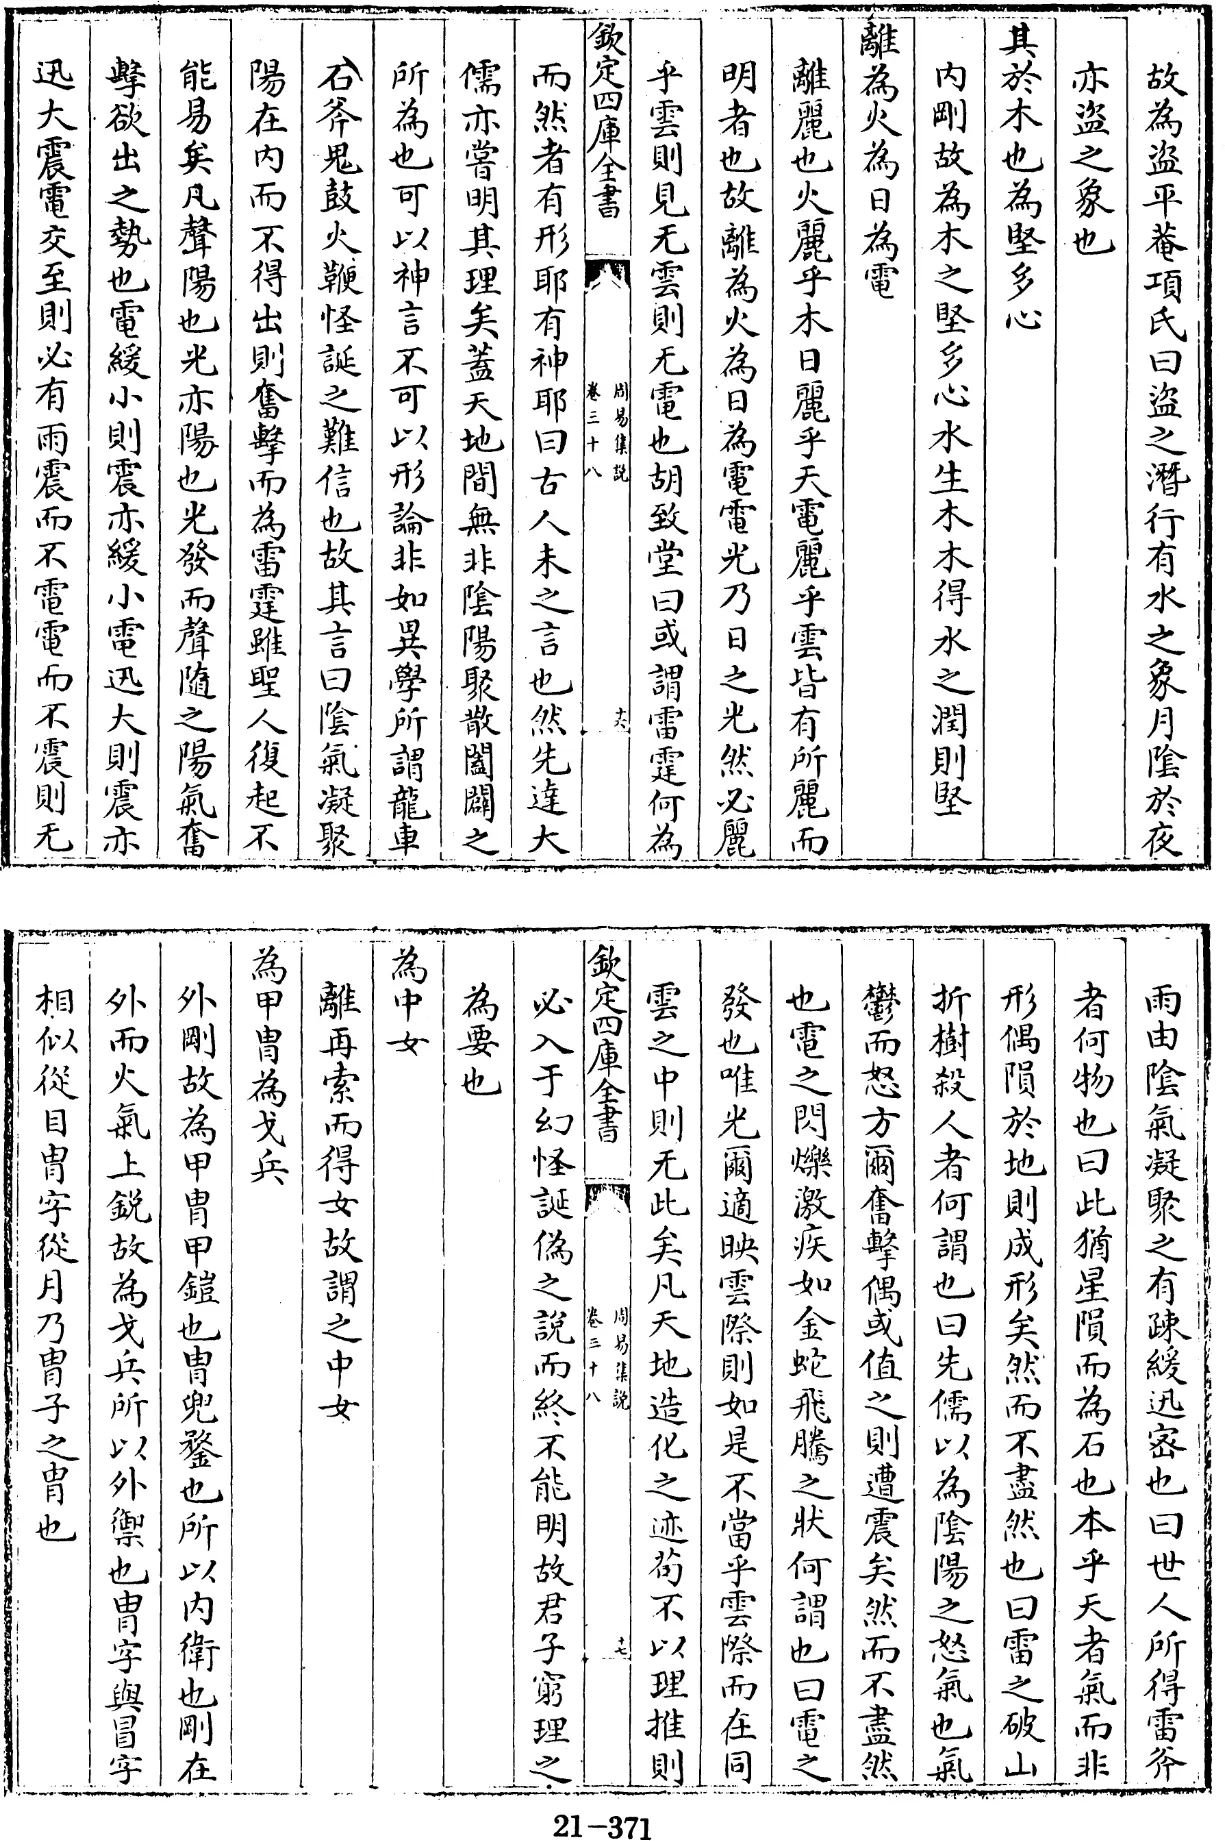 故為盜平菴項氏曰盜之潛行有水之象月隂於夜
亦盜之象也
其於木也為堅多心
内剛故為木之堅多心水生木木得水之潤則堅
離為火為日為電
離麗也火麗乎木日麗乎天電麗乎雲皆有所麗而
明者也故離為火為日為電電光乃日之光然必麗
乎雲則見无雲則无電也胡致堂曰或謂雷霆何為
欽定四庫全書
周易集説
卷三十八
十六
而然者有形耶有神耶曰古人未之言也然先達大
儒亦嘗明其理矣蓋天地間無非隂陽聚散闔闢之
所為也可以神言不可以形論非如異學所謂龍車
石斧鬼鼓火鞭怪誕之難信也故其言曰隂氣凝聚
陽在内而不得出則奮擊而為雷霆雖聖人復起不
能易矣凡聲陽也光亦陽也光發而聲隨之陽氣奮
擊欲出之勢也電緩小則震亦緩小電迅大則震亦
迅大震電交至則必有雨震而不電電而不震則无
雨由隂氣凝聚之有疎緩迅密也曰世人所得雷斧
者何物也曰此猶星隕而為石也本乎天者氣而非
形偶隕於地則成形矣然而不盡然也曰雷之破山
折樹殺人者何謂也曰先儒以為隂陽之怒氣也氣
鬱而怒方爾奮擊偶或值之則遭震矣然而不盡然
也電之閃爍激疾如金蛇飛騰之狀何謂也曰電之
發也唯光爾適映雲際則如是不當乎雲際而在同
雲之中則无此矣凡天地造化之迹茍不以理推則
欽定四庫全書
周易集説
卷三十八
十七
必入于幻怪誕偽之説而終不能明故君子窮理之
為要也
為中女
離再索而得女故謂之中女
為甲胄為戈兵
外剛故為甲胄甲鎧也胄兜鍪也所以内衛也剛在
外而火氣上鋭故為戈兵所以外禦也胄字與冒字
相似從目胄字從月乃胄子之胄也